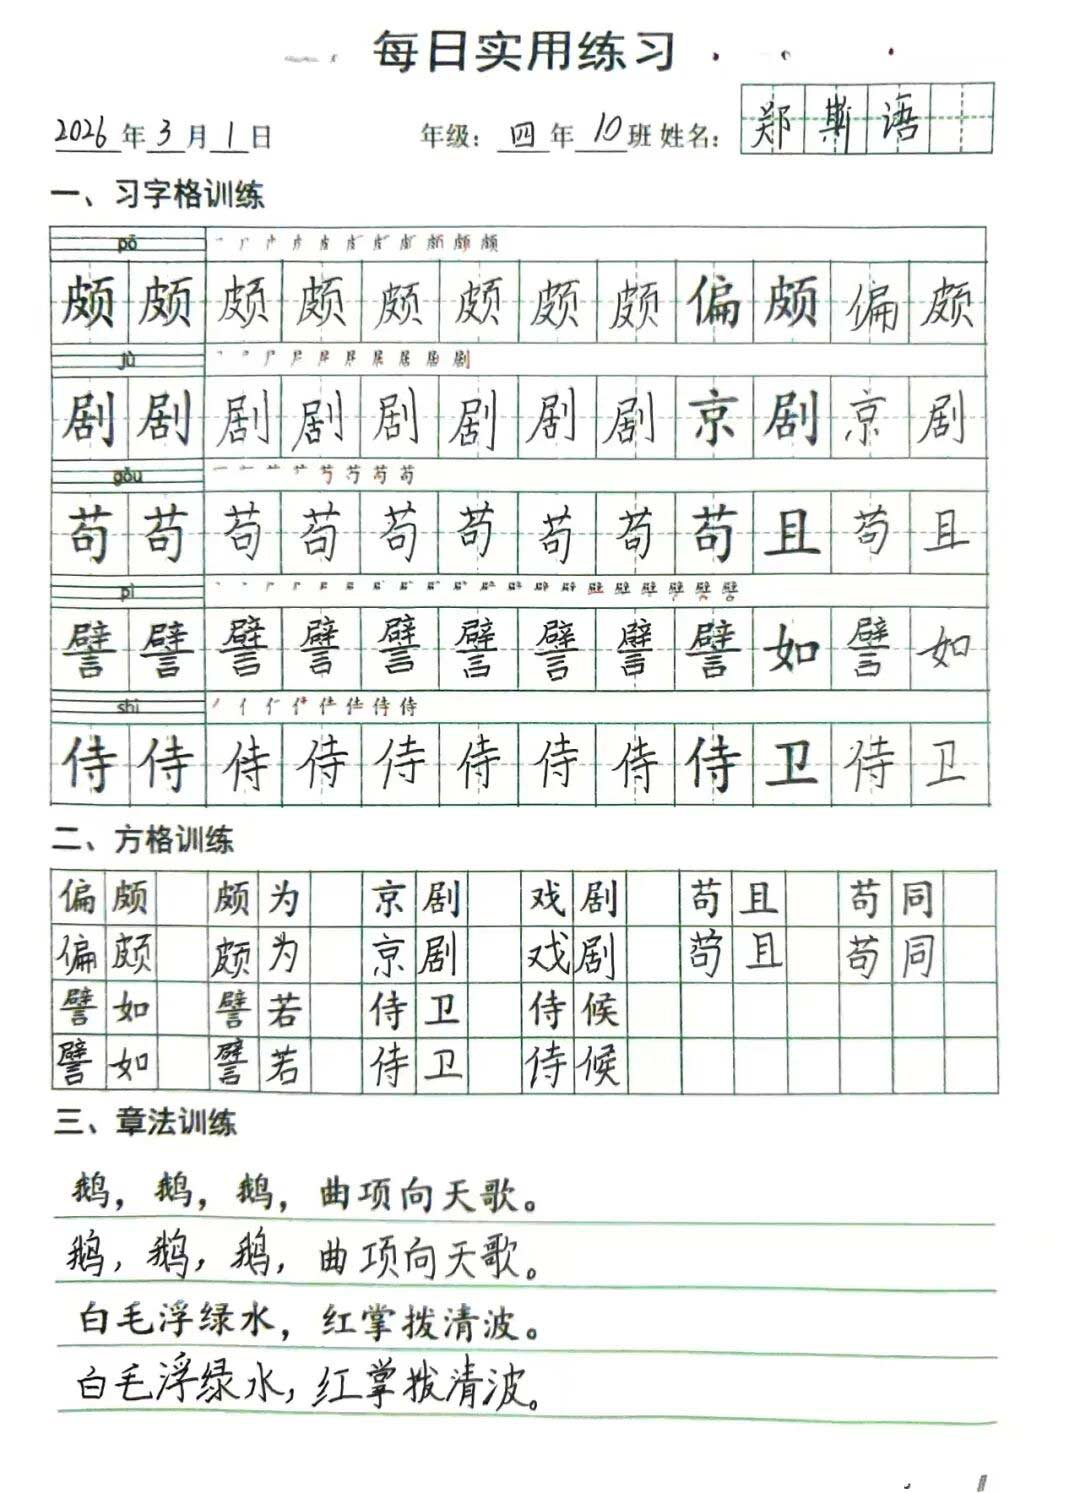 每日实用练习
2026年3月1日 年级：四年10班 姓名：郑斯语
一、习字格训练
pō
颇颇颇颇颇颇颇颇偏颇偏颇
jù
剧剧剧剧剧剧剧剧京剧京剧
gǒu
苟苟苟苟苟苟苟苟苟且苟且
pì
譬譬譬譬譬譬譬譬譬如譬如
shì
侍侍侍侍侍侍侍侍侍卫侍卫
二、方格训练
偏颇 颇为 京剧 戏剧 苟且 苟同
偏颇 颇为 京剧 戏剧 苟且 苟同
譬如 譬若 侍卫 侍候
譬如 譬若 侍卫 侍候
三、章法训练
鹅，鹅，鹅，曲项向天歌。
鹅，鹅，鹅，曲项向天歌。
白毛浮绿水，红掌拨清波。
白毛浮绿水，红掌拨清波。